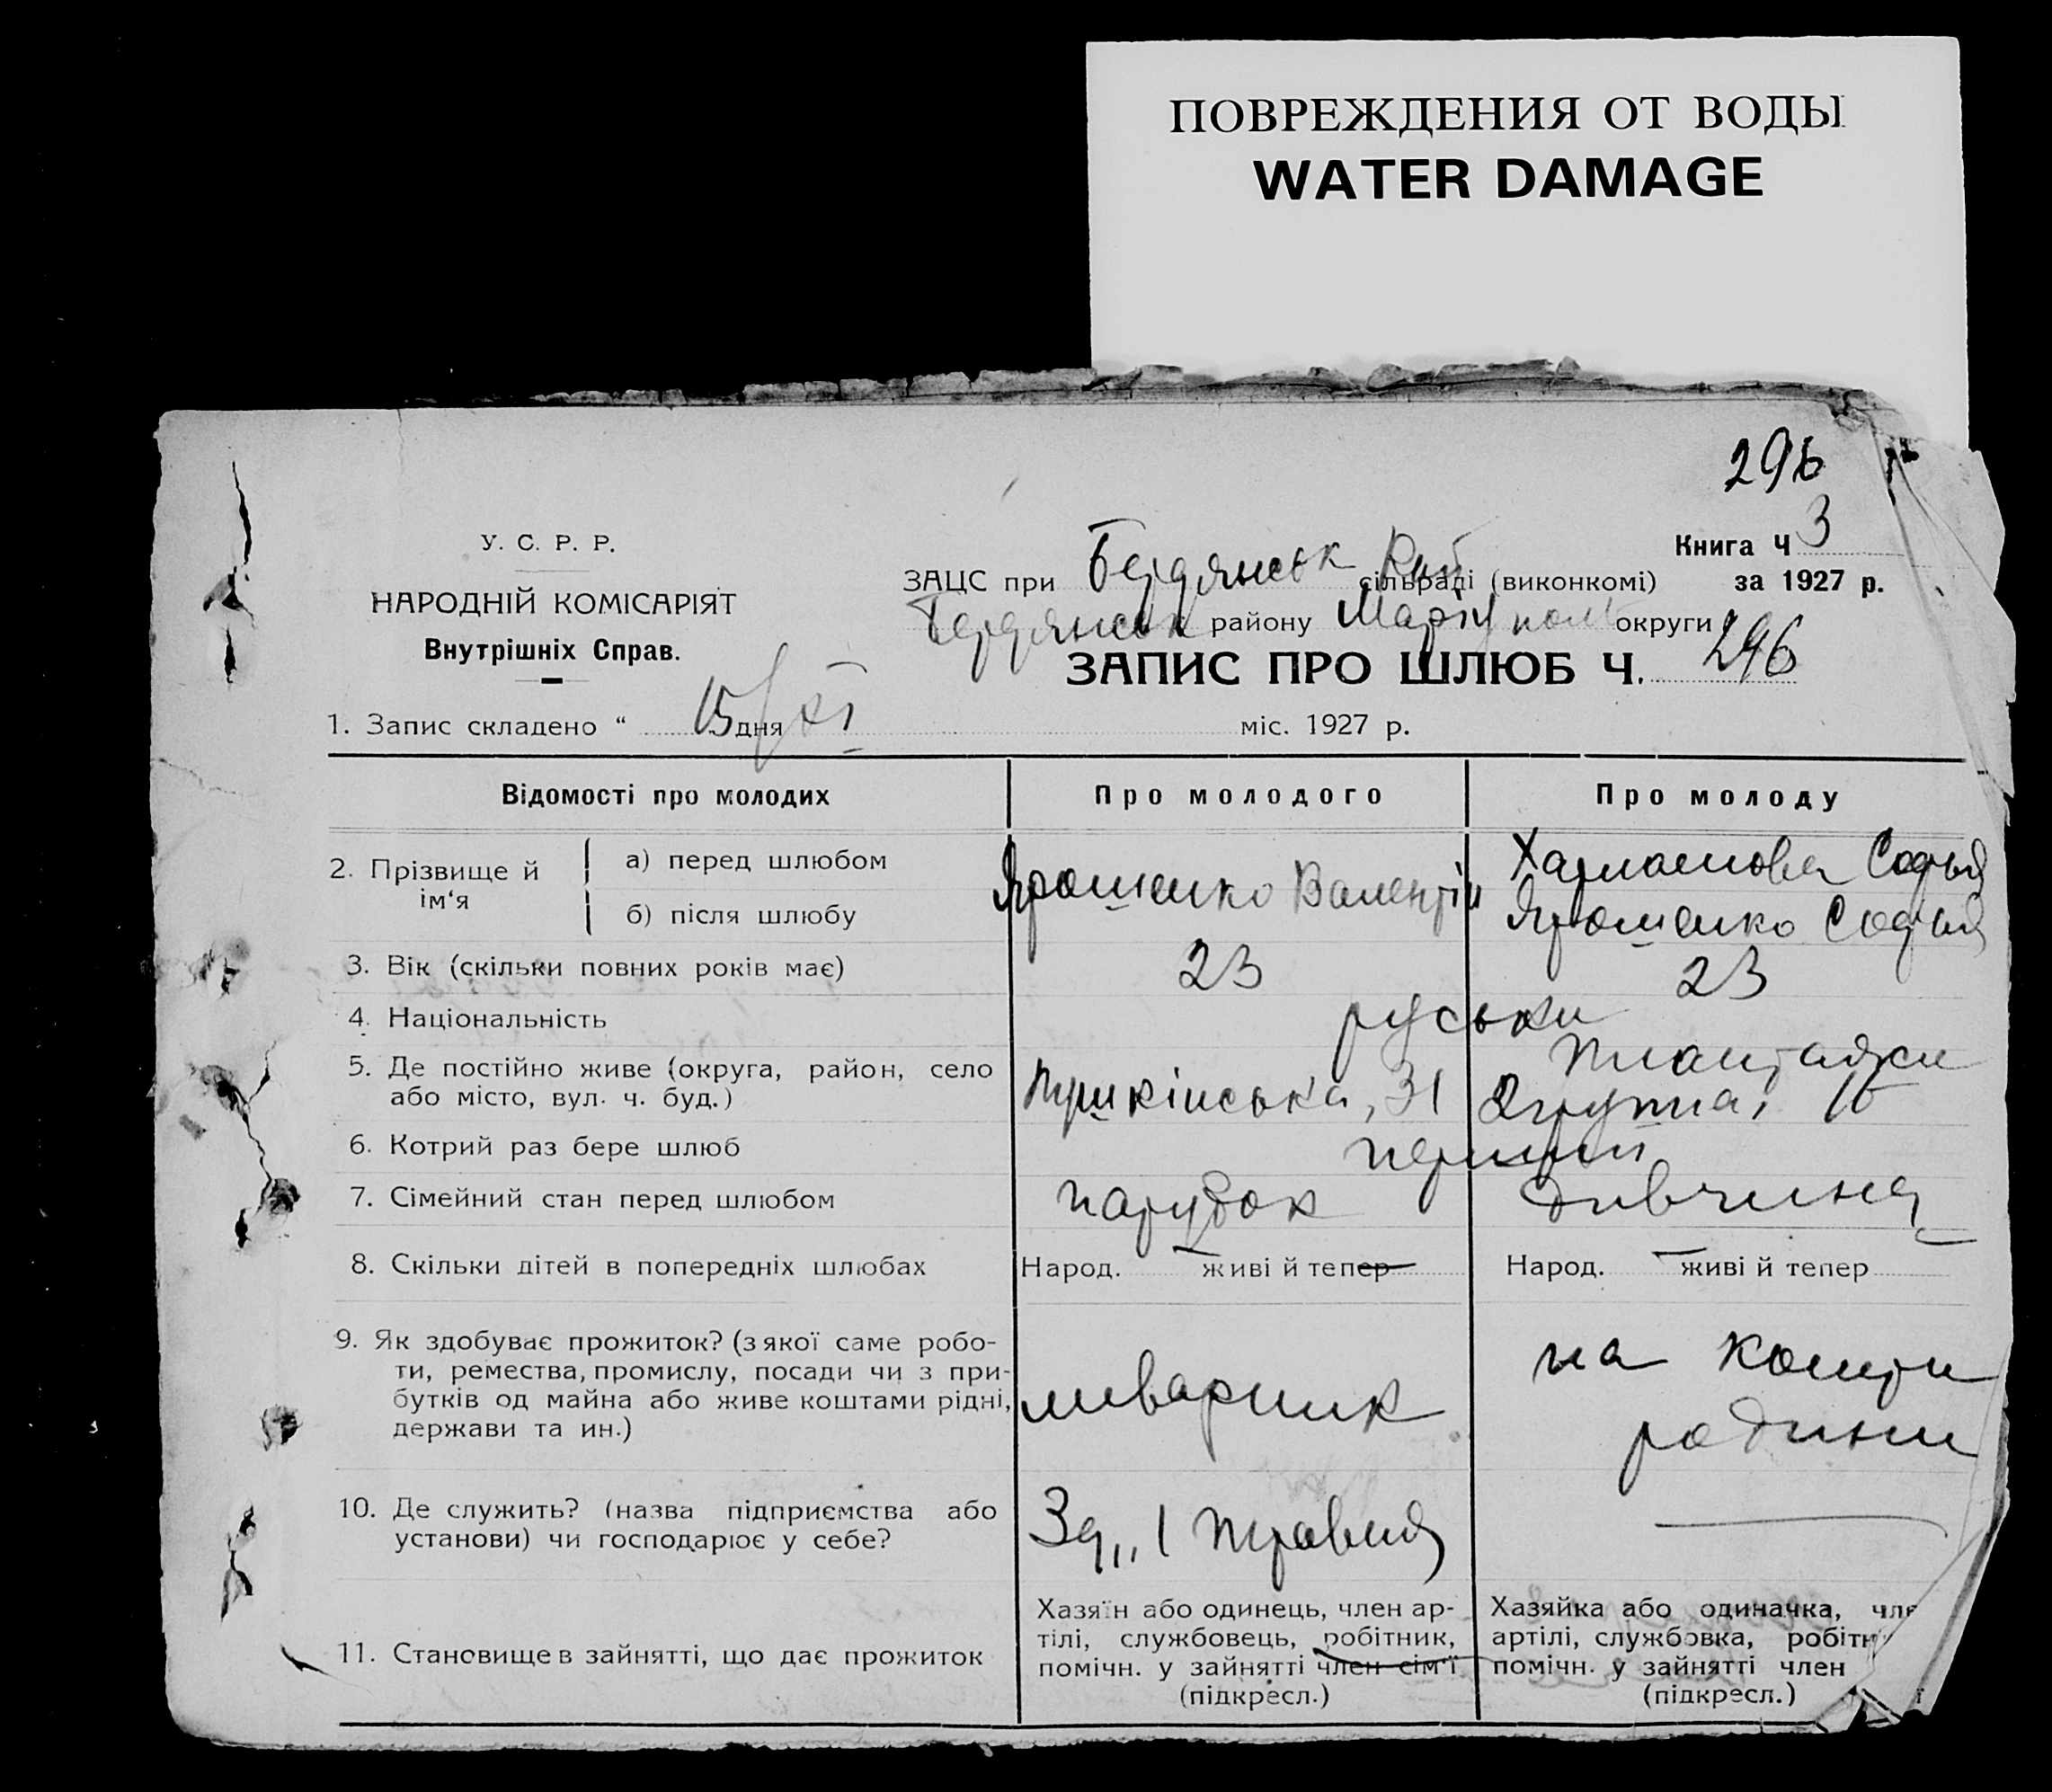 ПОВРЕЖДЕНИЯ ОТ ВОДЫ
WATER DAMAGE
296
У. С. Р. Р.
НАРОДНІЙ КОМІСАРІЯТ
Внутрішніх Справ.
Книга Ч 3
за 1927 р.
ЗАЦС при Бердянськ сільраді (виконкомі)
Бердянськ району Маріупол округи
ЗАПИС ПРО ШЛЮБ Ч. 296
1. Запис складено “ 15 дня XI міс. 1927 р.
Відомості про молодих
Про молодого
Про молоду
2. Прізвище й ім‘я
а) перед шлюбом
б) після шлюбу
Ярошенко Валентін
Харламова Софья
Ярошенко Софья
3. Вік (скільки повних років має)
23
23
4. Національність
руськи
5. Де постійно живе (округа, район, село
або місто, вул. ч. буд.)
Пушкінська, 31
2 група, 16
6. Котрий раз бере шлюб
перший
7. Сімейний стан перед шлюбом
парубок
дивчина
8. Скільки дітей в попередніх шлюбах
Народ. — живі й тепер —
Народ. — живі й тепер
9. Як здобуває прожиток? (з якої саме робо-
ти, ремества, промислу, посади чи з при-
бутків од майна або живе коштами рідні,
держави та ин.)
ливарник
на кошти
родини
10. Де служить? (назва підприємства або
установи) чи господарює у себе?
Зд. „1 травня
11. Становище в зайнятті, що дає прожиток
Хазяїн або одинець, член ар-
тілі, службовець, робітник,
помічн. у зайнятті член сім‘ї
(підкресл.)
Хазяйка або одиначка, чле
артілі, службовка, робітн
помічн. у зайнятті член
(підкресл.)